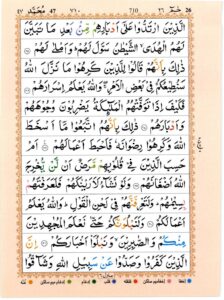 26 حٰمٓ ٢٦ 710 ٧١٠ 47 مُحَمَّد ٤٧
الَّذِيْنَ ارْتَدُّوْا عَلٰٓى اَدْبَارِهِمْ مِّنْۢ بَعْدِ مَا تَبَيَّنَ
لَهُمُ الْهُدَى ۙ الشَّيْطٰنُ سَوَّلَ لَهُمْ ؕ وَاَمْلٰى لَهُمْ
ذٰلِكَ بِاَنَّهُمْ قَالُوْا لِلَّذِيْنَ كَرِهُوْا مَا نَزَّلَ اللّٰهُ
سَنُطِيْعُكُمْ فِيْ بَعْضِ الْاَمْرِ ۚ وَاللّٰهُ يَعْلَمُ اِسْرَارَهُمْ
فَكَيْفَ اِذَا تَوَفَّتْهُمُ الْمَلٰٓئِكَةُ يَضْرِبُوْنَ وُجُوْهَهُمْ
وَاَدْبَارَهُمْ ذٰلِكَ بِاَنَّهُمُ اتَّبَعُوْا مَاۤ اَسْخَطَ
اللّٰهَ وَكَرِهُوْا رِضْوَانَهٗ فَاَحْبَطَ اَعْمَالَهُمْ اَمْ
حَسِبَ الَّذِيْنَ فِيْ قُلُوْبِهِمْ مَّرَضٌ اَنْ لَّنْ يُّخْرِجَ
اللّٰهُ اَضْغَانَهُمْ وَلَوْ نَشَآءُ لَاَرَيْنٰكَهُمْ فَلَعَرَفْتَهُمْ
بِسِيْمٰهُمْ ؕ وَلَتَعْرِفَنَّهُمْ فِيْ لَحْنِ الْقَوْلِ ؕ وَاللّٰهُ يَعْلَمُ
اَعْمَالَكُمْ وَلَنَبْلُوَنَّكُمْ حَتّٰى نَعْلَمَ الْمُجٰهِدِيْنَ
مِنْكُمْ وَالصّٰبِرِيْنَ ۙ وَنَبْلُوَا۟ اَخْبَارَكُمْ اِنَّ
الَّذِيْنَ كَفَرُوْا وَصَدُّوْا عَنْ سَبِيْلِ اللّٰهِ وَشَآقُّوا